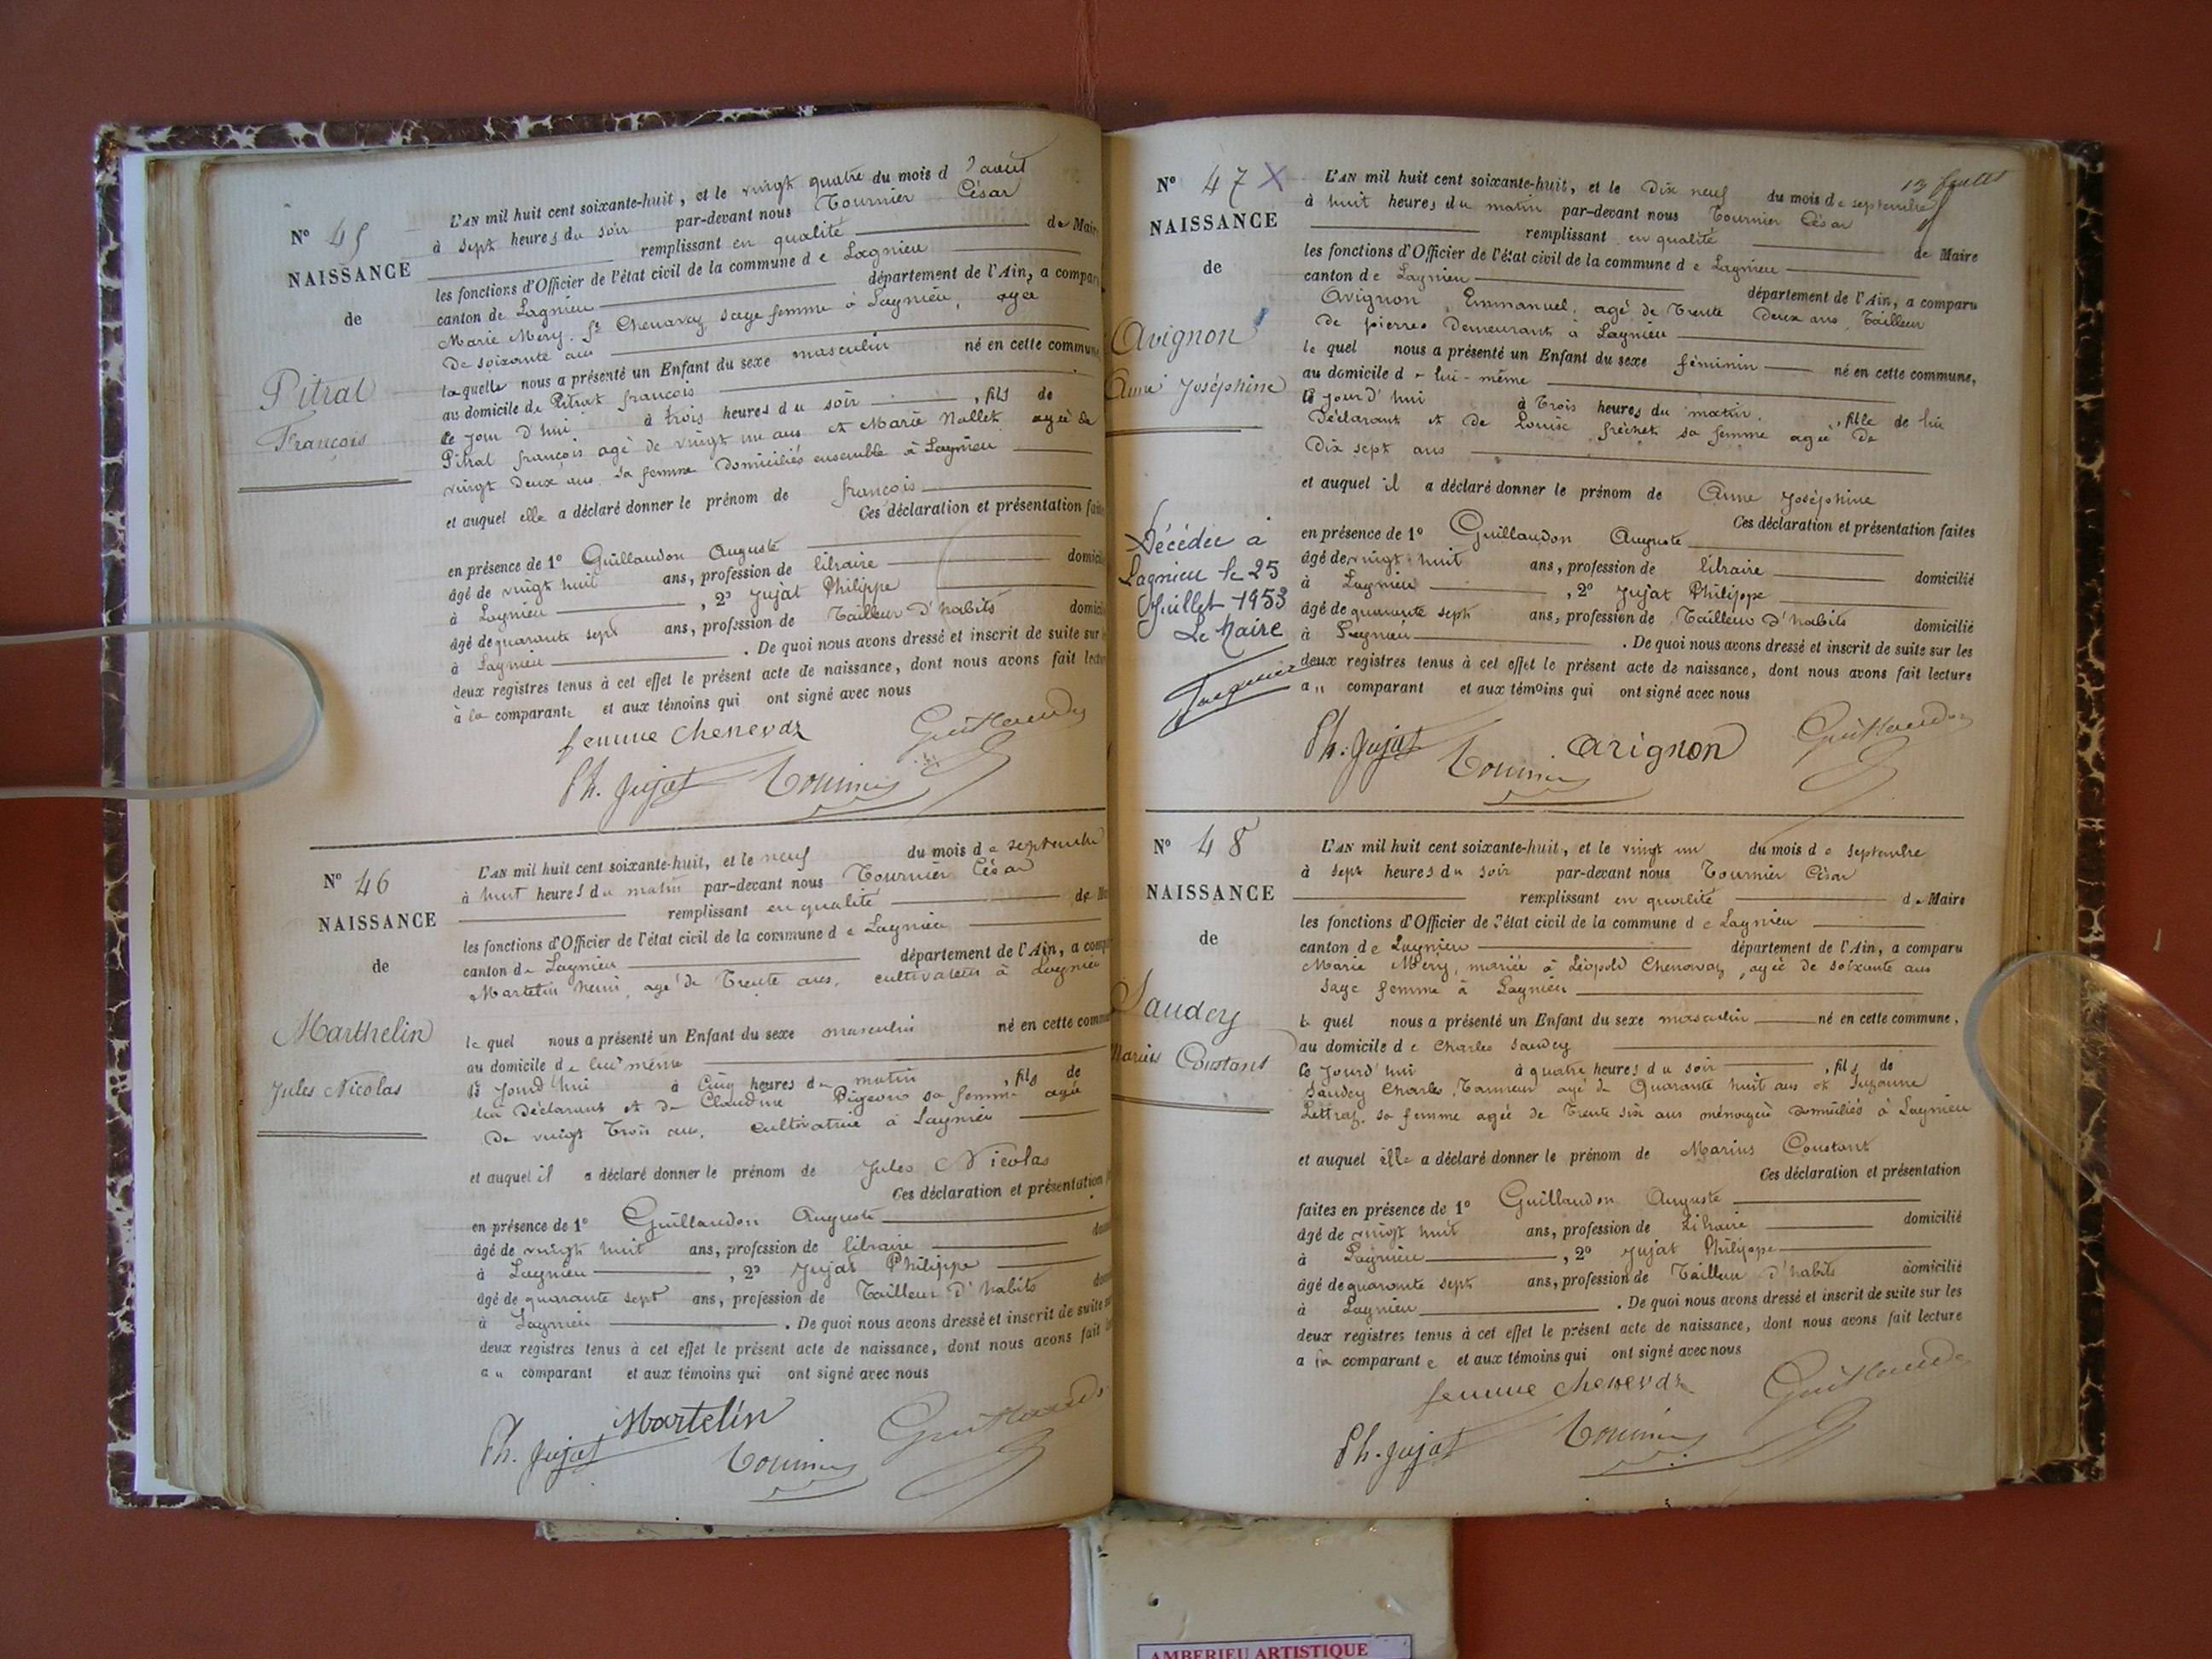 N° 45
NAISSANCE
de
Pitrat
François
L'AN mil huit cent soixante-huit, et le vingt quatre du mois d'août
à sept heures du soir par-devant nous Tournier César
remplissant en qualité de Mair
les fonctions d'Officier de l'état civil de la commune de Lagnieu
canton de Lagnieu département de l'Ain, a compar
Marie Mery fe Chenavaz sage femme à Lagnieu, agée
de soixante ans
laquelle nous a présenté un Enfant du sexe masculin né en cette commune
au domicile de Pitrat françois
ce jour d'hui à trois heures du soir, fils de
Pitrat françois agé de vingt un ans et Marie Nallet agée de
vingt deux ans sa femme domiciliés ensemble à Lagnieu
et auquel elle a déclaré donner le prénom de françois
Ces déclaration et présentation fai
en présence de 1° Guillaudon Auguste
âgé de vingt huit ans, profession de libraire domici
à Lagnieu, 2° Jujat Philippe
âgé de quarante sept ans, profession de Tailleur d'habits domici
à Lagnieu. De quoi nous avons dressé et inscrit de suite sur
deux registres tenus à cet effet le présent acte de naissance, dont nous avons fait lectur
à la comparante et aux témoins qui ont signé avec nous
femme chenevaz
Ph. Jujat
N° 46
NAISSANCE
de
Marthelin
Jules Nicolas
L'AN mil huit cent soixante-huit, et le neuf du mois de septembre
à huit heures du matin par-devant nous Tournier César
remplissant en qualité de Ma
les fonctions d'Officier de l'état civil de la commune de Lagnieu
canton de Lagnieu département de l'Ain, a comp
Martelin henri, agé de Trente ans, cultivateur à Lagnieu
lequel nous a présenté un Enfant du sexe masculin né en cette comm
au domicile de lui même
ce jourd'hui à cinq heures du matin, fils de
lui déclarant et de Claudine Pigeon sa femme agée
de vingt Trois ans, cultivatrice à Lagnieu
et auquel il a déclaré donner le prénom de Jules Nicolas
Ces déclaration et présentation
en présence de 1° Guillaudon Auguste
âgé de vingt huit ans, profession de libraire dom
à Lagnieu, 2° Jujat Philippe
âgé de quarante sept ans, profession de Tailleur d'habits dom
à Lagnieu. De quoi nous avons dressé et inscrit de suite su
deux registres tenus à cet effet le présent acte de naissance, dont nous avons fait
au comparant et aux témoins qui ont signé avec nous
Martelin
Ph. Jujat
13
N° 47 X
NAISSANCE
de
Avignon
Anne Joséphine
Décédée à
Lagnieu le 25
Juillet 1953
Le Maire
L'AN mil huit cent soixante-huit, et le dix neuf du mois de septembre
à huit heures du matin par-devant nous Tournier César
remplissant en qualité de Maire
les fonctions d'Officier de l'état civil de la commune de Lagnieu
canton de Lagnieu département de l'Ain, a comparu
Avignon Emmanuel, agé de Trente deux ans, Tailleur
de pierres demeurant à Lagnieu
lequel nous a présenté un Enfant du sexe féminin né en cette commune,
au domicile de lui-même
ce jourd'hui à Trois heures du matin, fille de lui
déclarant et de Louise fréchet sa femme agée de
Dix sept ans
et auquel il a déclaré donner le prénom de Anne Joséphine
Ces déclaration et présentation faites
en présence de 1° Guillaudon Auguste
âgé de vingt huit ans, profession de libraire domicilié
à Lagnieu, 2° Jujat Philippe
âgé de quarante sept ans, profession de Tailleur d'habits domicilié
à Lagnieu. De quoi nous avons dressé et inscrit de suite sur les
deux registres tenus à cet effet le présent acte de naissance, dont nous avons fait lecture
au comparant et aux témoins qui ont signé avec nous
Ph. Jujat avignon
N° 48
NAISSANCE
de
Saudey
Marius Constant
L'AN mil huit cent soixante-huit, et le vingt un du mois de septembre
à sept heures du soir par-devant nous Tournier César
remplissant en qualité de Maire
les fonctions d'Officier de l'état civil de la commune de Lagnieu
canton de Lagnieu département de l'Ain, a comparu
Marie Mery, mariée à Léopold Chenavaz, agée de soixante ans
sage femme à Lagnieu
le quel nous a présenté un Enfant du sexe masculin né en cette commune,
au domicile de Charles Saudey
ce jourd'hui à quatre heures du soir, fils de
Saudey Charles, Tanneur agé de Quarante huit ans et Suzanne
Lettraz, sa femme agée de Trente six ans ménagère domiciliés à Lagnieu
et auquel elle a déclaré donner le prénom de Marius Constant
Ces déclaration et présentation
faites en présence de 1° Guillaudon Auguste
âgé de vingt huit ans, profession de Libraire domicilié
à Lagnieu, 2° Jujat Philippe
âgé de quarante sept ans, profession de Tailleur d'habits domicilié
à Lagnieu. De quoi nous avons dressé et inscrit de suite sur les
deux registres tenus à cet effet le présent acte de naissance, dont nous avons fait lecture
a la comparante et aux témoins qui ont signé avec nous
femme chenevaz
Ph. Jujat
AMBERIEU ARTISTIQUE